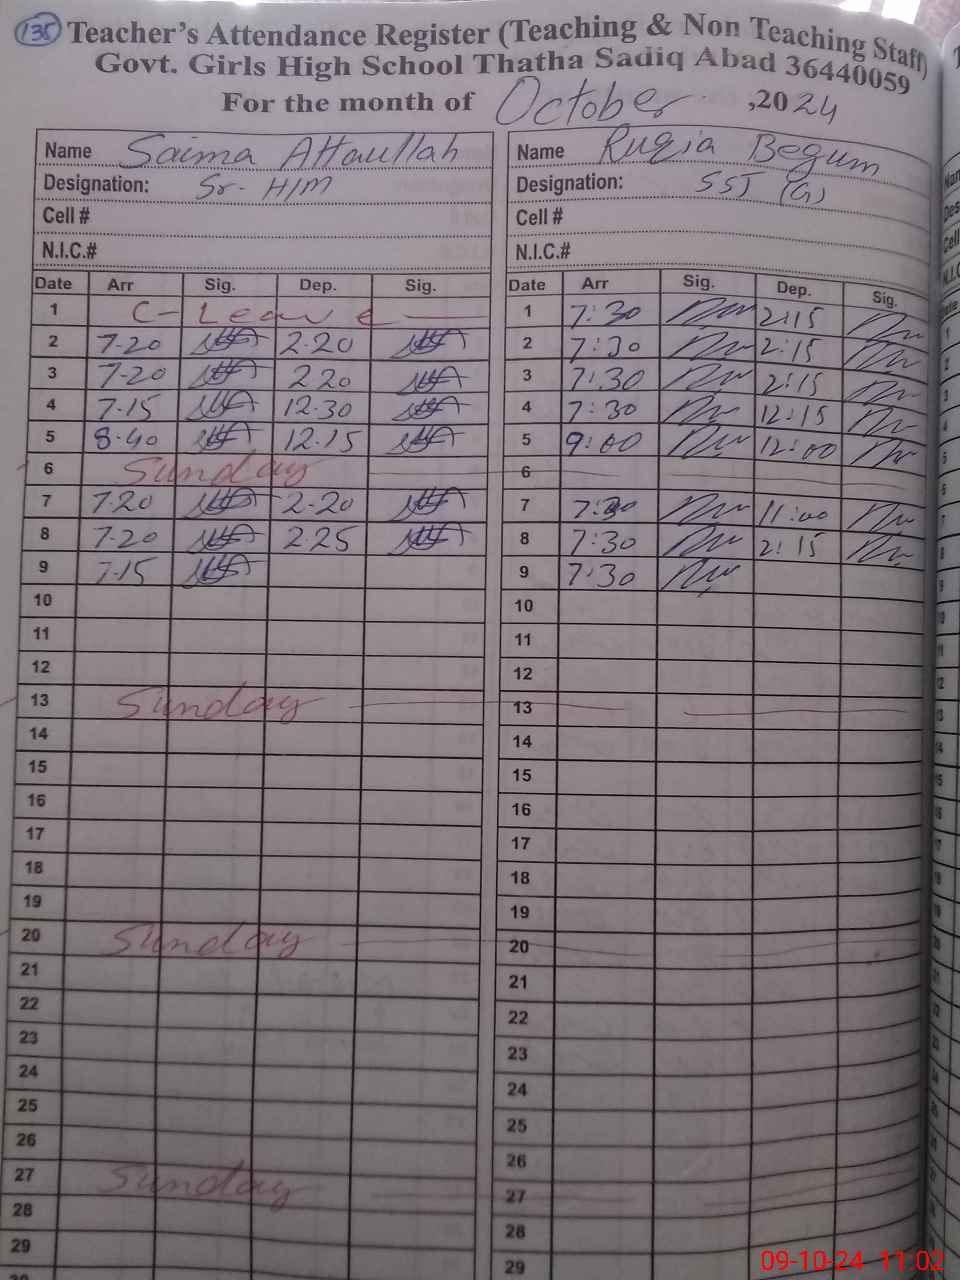 135 Teacher's Attendance Register (Teaching & Non Teaching Staff)
Govt. Girls High School Thatha Sadiq Abad 36440059
For the month of October ,2024
Name Saima Attaullah
Designation: Sr- H/M
Cell #
N.I.C.#
Date Arr Sig. Dep. Sig.
1 C- Leave
2 7-20 2-20
3 7-20 2 20
4 7-15 12-30
5 8-40 12-15
6 Sunday
7 7-20 2-20
8 7-20 2-25
9 7-15
10
11
12
13 Sunday
14
15
16
17
18
19
20 Sunday
21
22
23
24
25
26
27 Sunday
28
29
Name Ruqia Begum
Designation: SST (G)
Cell #
N.I.C.#
Date Arr Sig. Dep. Sig.
1 7:30 2:15
2 7:30 2:15
3 7:30 2:15
4 7:30 12:15
5 9:00 12:00
6
7 7:30 11:00
8 7:30 2:15
9 7:30
10
11
12
13
14
15
16
17
18
19
20
21
22
23
24
25
26
27
28
29
09-10-24 11:02